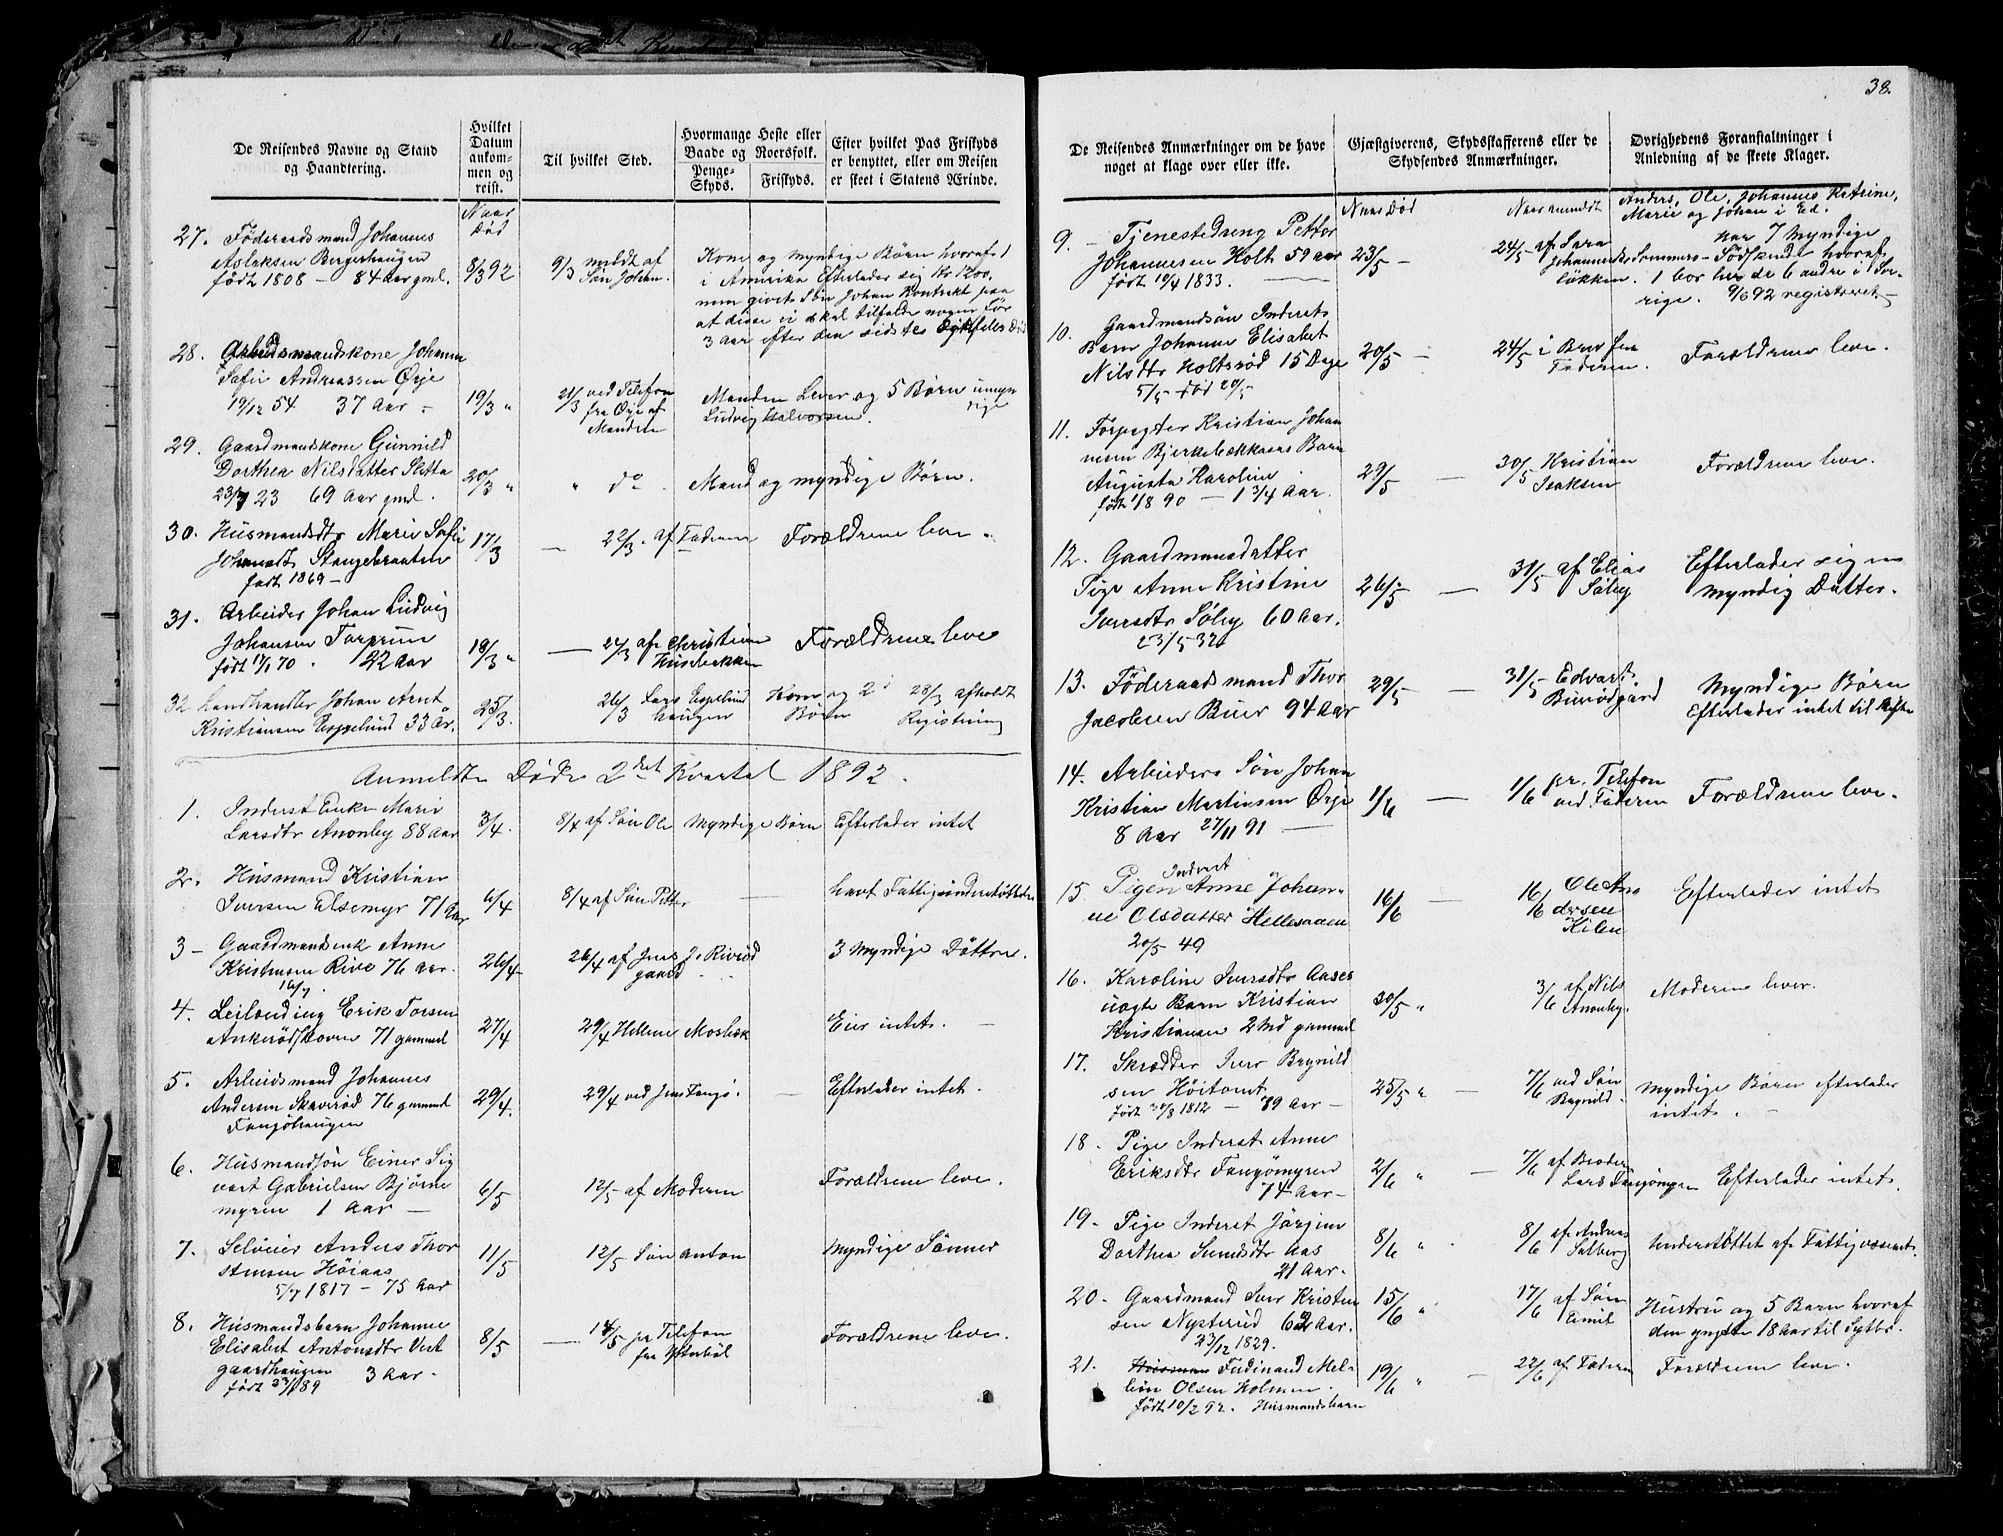 38.
De Reisendes Navne og Stand
og Haandtering.
Hvilket
Datum
ankom-
men og
reist.
Til hvilket Sted.
Hvormange Heste eller
Baade og Roersfolk.
Penge-
Skyds.
Friskyds.
Efter hvilket Pas Friskyds
er benyttet, eller om Reisen
er skeet i Statens Ærinde.
Naar
Død
27. Föderaadsmand Johannes
Aslaksen Bergerhaugen
født 1808 - 84 Aar gml.
8/3 92
9/3 meldt af
Søn Johan.
Kone og myndige Børn hvoraf 1
i Amerika Efterlader sig Kr 1200.
men givet Søn Johan Kontrakt paa
at disse ei skal tilfalde nogen før
3 Aar efter den sidstes
28. Arbeidsmandskone Johanne
Sofie Andreassen Ørje
19/12 54 37 Aar -
19/3 "
21/3 ved Telefon
fra Ørje af
Manden
Manden Lever og 5 Børn umyn
dige
Ludvig Halvorsen.
29. Gaardmandskone Gunnild
Dorthea Nilsdatter Slitta
23 69 Aar gml.
20/3 "
" do
Mand og myndige Børn.
30. Husmandsdtr Marie Sofie
Johansdtr Stangebraaten
født 1869 -
17/3
22/3. af Faderen
Forældrene leve.
31. Arbeider Johan Ludvig
Johansen Torprun
født 17/1 70. 22 Aar
18/3 "
24/3 af Christian
Husebakken
Forældrene leve
32 Landhandler Johan Arnt
Kristiansen Espelund 33 År.
25/3.
26/3 Lars Espelund
haugen
Kone og 2
Børn
28/3 afholdt
Registring
Anmeldte Døde 2det Kvartal 1892.
1. Inderst Enke Marie
Larsdtr Anonby 88 Aar
3/4.
8/4 af Søn Ole
Myndige Børn
Efterlader intet
2. Husmand Kristian
Iversen Elsemyr 71 Aar
6/4
8/4 af Søn Petter
havt Fattigunderstøttelse
3 - Gaardmandsenk Anne
Kristensen Rive 76 Aar.
16/7.
26/4
26/4 af Jens J. Rivrød
gaard
3 Myndige Døttre.
4. Leilænding Erik Torsen
Ankerødskoven 71 gammel
27/4
29/4 Hellene Mosbæk
Eier intet. -
5. Arbeidsmand Johannes
Andersen Skavrød 76 gammel
Fangøhaugen
29/4.
29/4 ved Jens Fangø.
Efterlader intet.
6. Husmandsøn Einer Sig
vart Gabrielsen Bjørne
myren 1 Aar -
6/5
12/5 af Moderen
Forældrene leve.
7. Selveier Anders Thor
stensen Höiaas
5/7 1817 - 75 Aar
11/5
12/5 Søn Anton
Myndige Sønner
8. Husmandsbarn Johanne
Elisabet Antonsdtr Vest
gaardhaugen 3 Aar -
født 89
8/5
14/5 pr Telefon
fra Ysterbøl
Forældrene leve.
De Reisendes Anmærkninger om de have
noget at klage over eller ikke.
Gjæstgiverens, Skydsskafferens eller de
Skydsendes Anmærkninger.
Øvrighedens Foranstaltninger i
Anledning af de skeete Klager.
Naar Død
Naar anmeldt
Anders, Ole, Johannes Katrine,
Marie og Johan i Ed.
9. - Tjenestedreng Petter
Johannesen Holt 59 aar
født 19/4 1833. -
23/5 -
24/5 af Sara
Johannesdtr Sommero-
løkken.
Har 7 Myndige
Sødskende hvoraf
1 bor her de 6 andre i Sve-
rige. 9/6 92 registreret -
10. Gaardmandsøn Inderst
Barn Johanne Elisabet
Nilsdtr Holtsrød 15 Dage
5/5 - død 20/5
20/5 -
24/5 i Brev fra
Faderen.
Forældrene leve.
11. Forpagter Kristian Johan
nesen Bjerkebækkaas Barn
Augusta Karoline
født 1/8 90 - 1 3/4 Aar.
29/5 -
30/5 Kristian
Isaksen
Forældrene leve.
12. Gaardmansdatter
Pige Anne Kristine
Iversdtr Søby 60 Aar.
23/5 32
26/5 -
31/5 af Elias
Søby
Efterlader sig en
Myndig Datter.
13. Föderaadsmand Thor
Jacobsen Buer 94 Aar
29/5 -
31/5 Edvart
Buerødgaard
Myndige Børn
Efterlader intet til Skifte
14. Arbeiders Søn Johan
Kristian Martinsen Ørje
8 Aar 27/11 91 -
1/6 -
1/6 pr. Telefon
ved Faderen
Forældrene leve.
15 Inderst
Pigen Anne Johan-
ne Olsdatter Hellesaaen
20/5 49
16/6 -
16/6 Ole An-
dersen
Kilen
Efterlader intet
16. Karoline Iversdtr Aases
uægte Barn Kristian
Kristiansen 2 Md gammel
30/5 "
3/6 af Nils
Anonby.
Moderen lever.
17. Skrædder Iver Brynild
sen Höitomt
født 30/8 1812 - 79 Aar -
25/5 "
7/6 ved Søn
Brynild
Myndige Børn efterlader
intet. -
18 - Pige Inderst Anne
Eriksdtr Fangømyren
74 Aar -
2/6 "
7/6 af Broder
Lars Fangömyren
Efterlader intet.
19. Pige Inderst Jörgine
Dorthea Svendsdtr Aas
21 Aar.
8/6 "
8/6 af Andreas
Solberg
Understøttet af Fattigvæsenet.
20 - Gaardmand Iver Kristen
sen Nysterud 62 Aar.
23/12 1829.
15/6 "
17/6 af Søn
Emil
Hustru og 5 Barn hvoraf
den yngste 18 Aar til Sytbø.
21. Husman Ferdinand Mel-
leön Olsen Holmen.
født 10/2 92. Husmandsbarn
19/6 "
22/6 af Faderen
Forældrene leve.